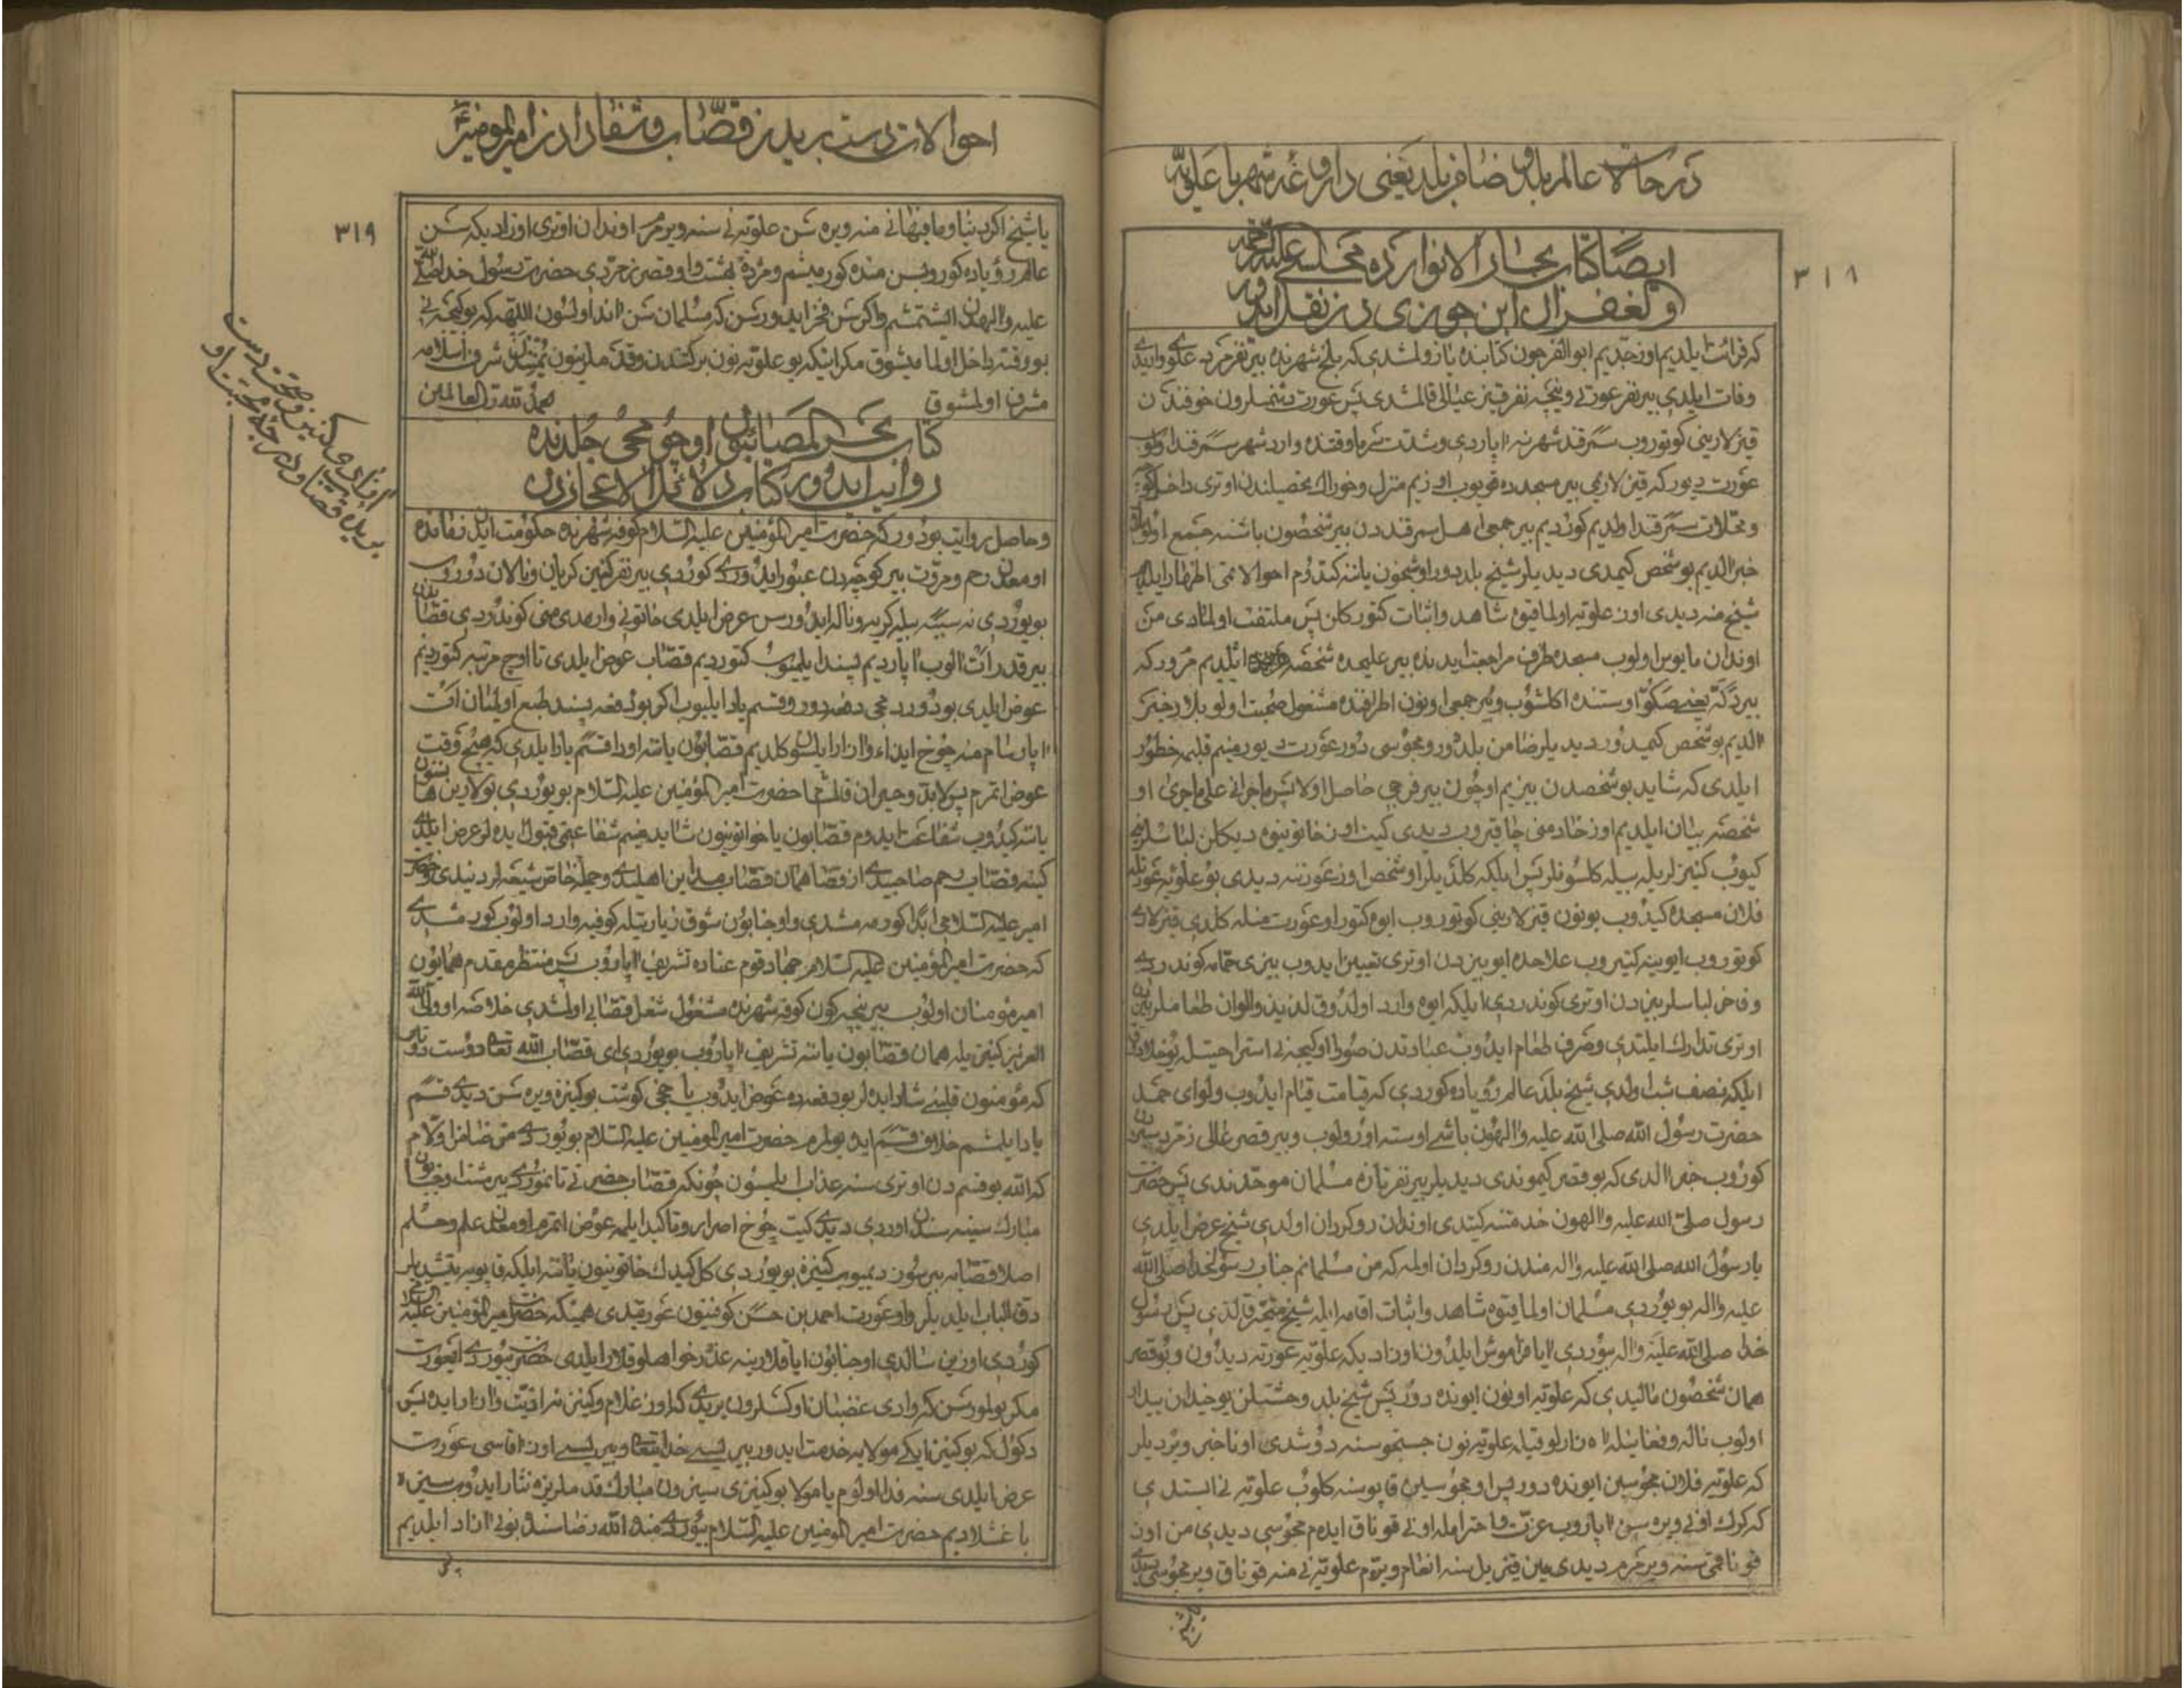 در حالات عالم بلد و ضامن بلد یعنی داروغه شهر با علویه
۳۱۸
ایضا کتاب بحار الانوارده مجلسی علیه الرحمه
و الغفران ابن جوزی دن نقل ایدور
که قرائت ایلدیم اوز جدیم ابو الفرجون کتابنده یازولمشدی که بلخ شهرنده بیر نفر مرد علوی وار ایدی
وفات ایلدی بیر نفر عورتی و نیچه نفر قیز عیالی قالمشدی پس عورت دشمنلرون خوفندن
قیزلارینی کوتوروب سمرقند شهرنه اپاردی و شدت سرما وقتنده وارد شهر سمرقند اولوب
عورت دیور که قیزلاریمی بیر مسجده قویوب اوزیم منزل و خوراک تحصیلندن اوتری داخل کوچه
و محلات سمرقند اولدیم کوردیم بیر جمعی اهل سمرقنددن بیر شخصون باشنه جمع اولوبلار
خبر الدیم بو شخص کیمدی دیدیلر شیخ بلددور او شیخون یاننه کتدوم احوالاتمی اظهار ایلدیم
شیخ منه دیدی اوز علویه اولماقیوه شاهد و اثبات کتور کلن پس ملتفت اولمادی من
اوندان مایوس اولوب مسجد طرفه مراجعت ایدنده بیر علیحده شخصه ایلدیم مرور که
بیر دکّه یعنی صکّو اوستنده اکلشوب و بیر جمعی اونون اطرافنده مشغول صحبت اولوبلار خبر
الدیم بو شخص کیمدور دیدیلر ضامن بلددور و مجوسی دور عورت دیور منیم قلبمه خطور
ایلدی که شاید بو شخصدن بیزیم اوچون بیر فرجی حاصل اولا پس ماجرانی علی ماجری او
شخصه بیان ایلدیم اوز خادمنی چاقیروب دیدی کیت اوز خاتونیوه دیکلن لباسلرینی
کیوب کنیزلریله بیله کلسونلر پس ایلکه کلدیلر او شخص اوز عورتنه دیدی بو علویه عورتله
فلان مسجده کیدوب بونون قیزلارینی کوتوروب ایوه کتور او عورت منله کلدی قیزلاری
کوتوروب ایوینه کتیروب علاحده ایو بیزدن اوتری تعیین ایدوب بیزی حمامه کوندردی
و فاخر لباسلر بیزدن اوتری کوندردی ایلکه ایوه وارد اولدوق لذیذ و الوان طعاملر بیزدن
اوتری تدارک ایلتدی و صرف طعام ایدوب عبادتدن صورا او کیجه نی استراحتله یوخلادوق
ایلکه نصف شب اولدی شیخ بلد عالم رؤیاده کوردی که قیامت قیام ایدوب و لوای حمد
حضرت رسول الله صلی الله علیه و الهون باشی اوسته اورولوب و بیر قصر عالی زمرد سبزدن
کوروب خبر الدی که بو قصر کیموندی دیدیلر بیر نفر تازه مسلمان موحدندی پس حضرت
رسول صلی الله علیه و الهون خدمتنه کیتدی اوندان روکردان اولدی شیخ عرض ایلدی
یا رسول الله صلی الله علیه و اله مندن روکردان اولمه که من مسلمانم جناب رسول خدا صلی الله
علیه و اله بویوردی مسلمان اولماقیوه شاهد و اثبات اقامه ایله شیخ متحیر قالدی پس رسول
خدا صلی الله علیه و اله بیوردی ایا فراموش ایلدون اوزادیکه علویه عورته دیدون و بو قصر
همان شخصون مالیدی که علویه اونون ایونده دور پس شیخ بلد وحشتیلن یوخیدان بیدار
اولوب ناله و فغانیله اه زار اوقیله علویه نون جستجوسنه دوشدی اونا خبر ویردیلر
که علویه فلان مجوسین ایونده دور پس او مجوسین قاپوسنه کلوب علویه نی ایستدی
که کرک اونی ویره سن اپاروب عزت و احترامله اونی قوناق ایدم مجوسی دیدی من اوز
قوناقمی سنه ویرمرم دیدی مین قیزیل سنه انعام ویروم علویه نی منه قوناق ویر مجوسی دیدی
یا شیخ
احوالات دست بریدن قصّاب و شفا دادن امیر المومنین ع
۳۱۹
یا شیخ اکر دنیا و ما فیها نی منه ویره سن علویه نی سنه ویرمرم اوندان اوتری اوزادیکه سن
عالم رؤیاده کوروبسن منده کورمیشم و مژده بهشت و او قصر زمردی حضرت رسول خدا صلی الله
علیه و الهدن ایشتمشم و اکر سن فخر ایدورسن که مسلمان سن اند اولسون اللهه که بو کیجه نی
بو وقته داخل اولمامیشوق مکر اینکه بو علویه نون برکتندن و قدملرینون یمنیندن شرف اسلامه
مشرف اولمشوق
الحمد لله رب العالمین
کتاب بحر المصائبون اوچومجی جلدنده
روایت ایدور کتاب دلائل الاعجازدن
و حاصل روایت بودور که حضرت امیر المؤمنین علیه السلام کوفه شهرنده حکومت ایلن زمانده
او معدن رحم و مروت بیر کوچه دن عبور ایدوردی کوردی بیر نفر کنیز کریان و نالان دوروب
بویوردی نه سببه بیله کریه و ناله ایدورسن عرض ایلدی خاتونی واریمدی منی کوندوردی قصابدن
بیر قدر ات الوب اپاردیم پسند ایلمیوب کتوردیم قصّاب عوض ایلدی تا اوچ مرتبه کتوردیم
عوض ایلدی بو دوردمجی دفعه دور و قسم یاد ایلیوب اکر بو دفعه پسند طبع اولمیان ات
اپارسام منه چوخ ایذاء و ازار ایلسون کلدیم قصّابون یاننه اودا قسم یاد ایلدی که هیچ وقت
عوض اتمرم پس لابد و حیران قالمشام حضرت امیر المؤمنین علیه السلام بویوردی بولارین هانسینون
یاننه کیدوب شفاعت ایدوم قصّابون یا خواتونیون شاید منیم شفاعتمی قبول ایده لر عرض ایلدی
کینه قصّاب رحم صاحبیدی از قضا همان قصّاب مداین اهلیدی و جمله خاص شیعه لردنیدی و حضرت
امیر علیه السلامی ابدا کورمه مشدی و او جنابون شوق زیارتیله کوفیه وارد اولوب کورمشدی
که حضرت امیر المؤمنین علیه السلام جهاد قوم عناده تشریف اپاروب پس منتظر مقدم همایون
امیر مؤمنان اولوب بیر نیچه کون کوفه شهرنده مشغول شغل قصّابی اولمشدی خلاصه او ولی الله
العزیز کنیزیله همان قصّابون یاننه تشریف اپاروب بویوردی ای قصّاب الله تعالی دوست دوتار
که مؤمنون قلبنی شاد ایده لر بو دفعه ده عوض ایدوب یاخجی کوشت بو کنیزه ویره سن دیدی قسم
یاد ایلمشم خلاف قسم ایده بولمرم حضرت امیر المومنین علیه السلام بویوردی من ضامن اولام
که الله بو قسم دن اوتری سنه عذاب ایلمیسون چونکه قصّاب حضرتی تانمزدی بیر مشت او جنابون
مبارک سینه سندن اوردی دیدی کیت چوخ اصرار و تاکید ایلمه عوض اتمرم او معدن علم و حلم
اصلا قصّابه بیر سوز دیمیوب کنیزه بویوردی کل کیدک خاتونیون یاننه ایلکه قاپویه یتشدیلر
دق الباب ایلدیلر و او عورت احمد بن حسن کوفینون عورتیدی همینکه حضرت امیر المؤمنین علیه السلامی
کوردی اوزین سالدی او جنابون ایاقلارینه عذرخواهلوقلار ایلدی حضرت بیوردی ای عورت
مکر بولمورسن که واردی غضبان اوکسلرون بریدی که اوز غلام و کنیزنه اذیت و ازار ایده پس
دکول که بو کنیز ایکی مولایه خدمت ایدور بیریسی خدایتعالی و بیریسی اوز اقاسی عورت
عرض ایلدی سنه فدا اولوم یا مولا بو کنیزی سیزون مبارک قدملریزه نثار ایدوب سیزه
باغشلادیم حضرت امیر المومنین علیه السلام بیوردی منده الله رضاسنه بونی ازاد ایلدیم
پس